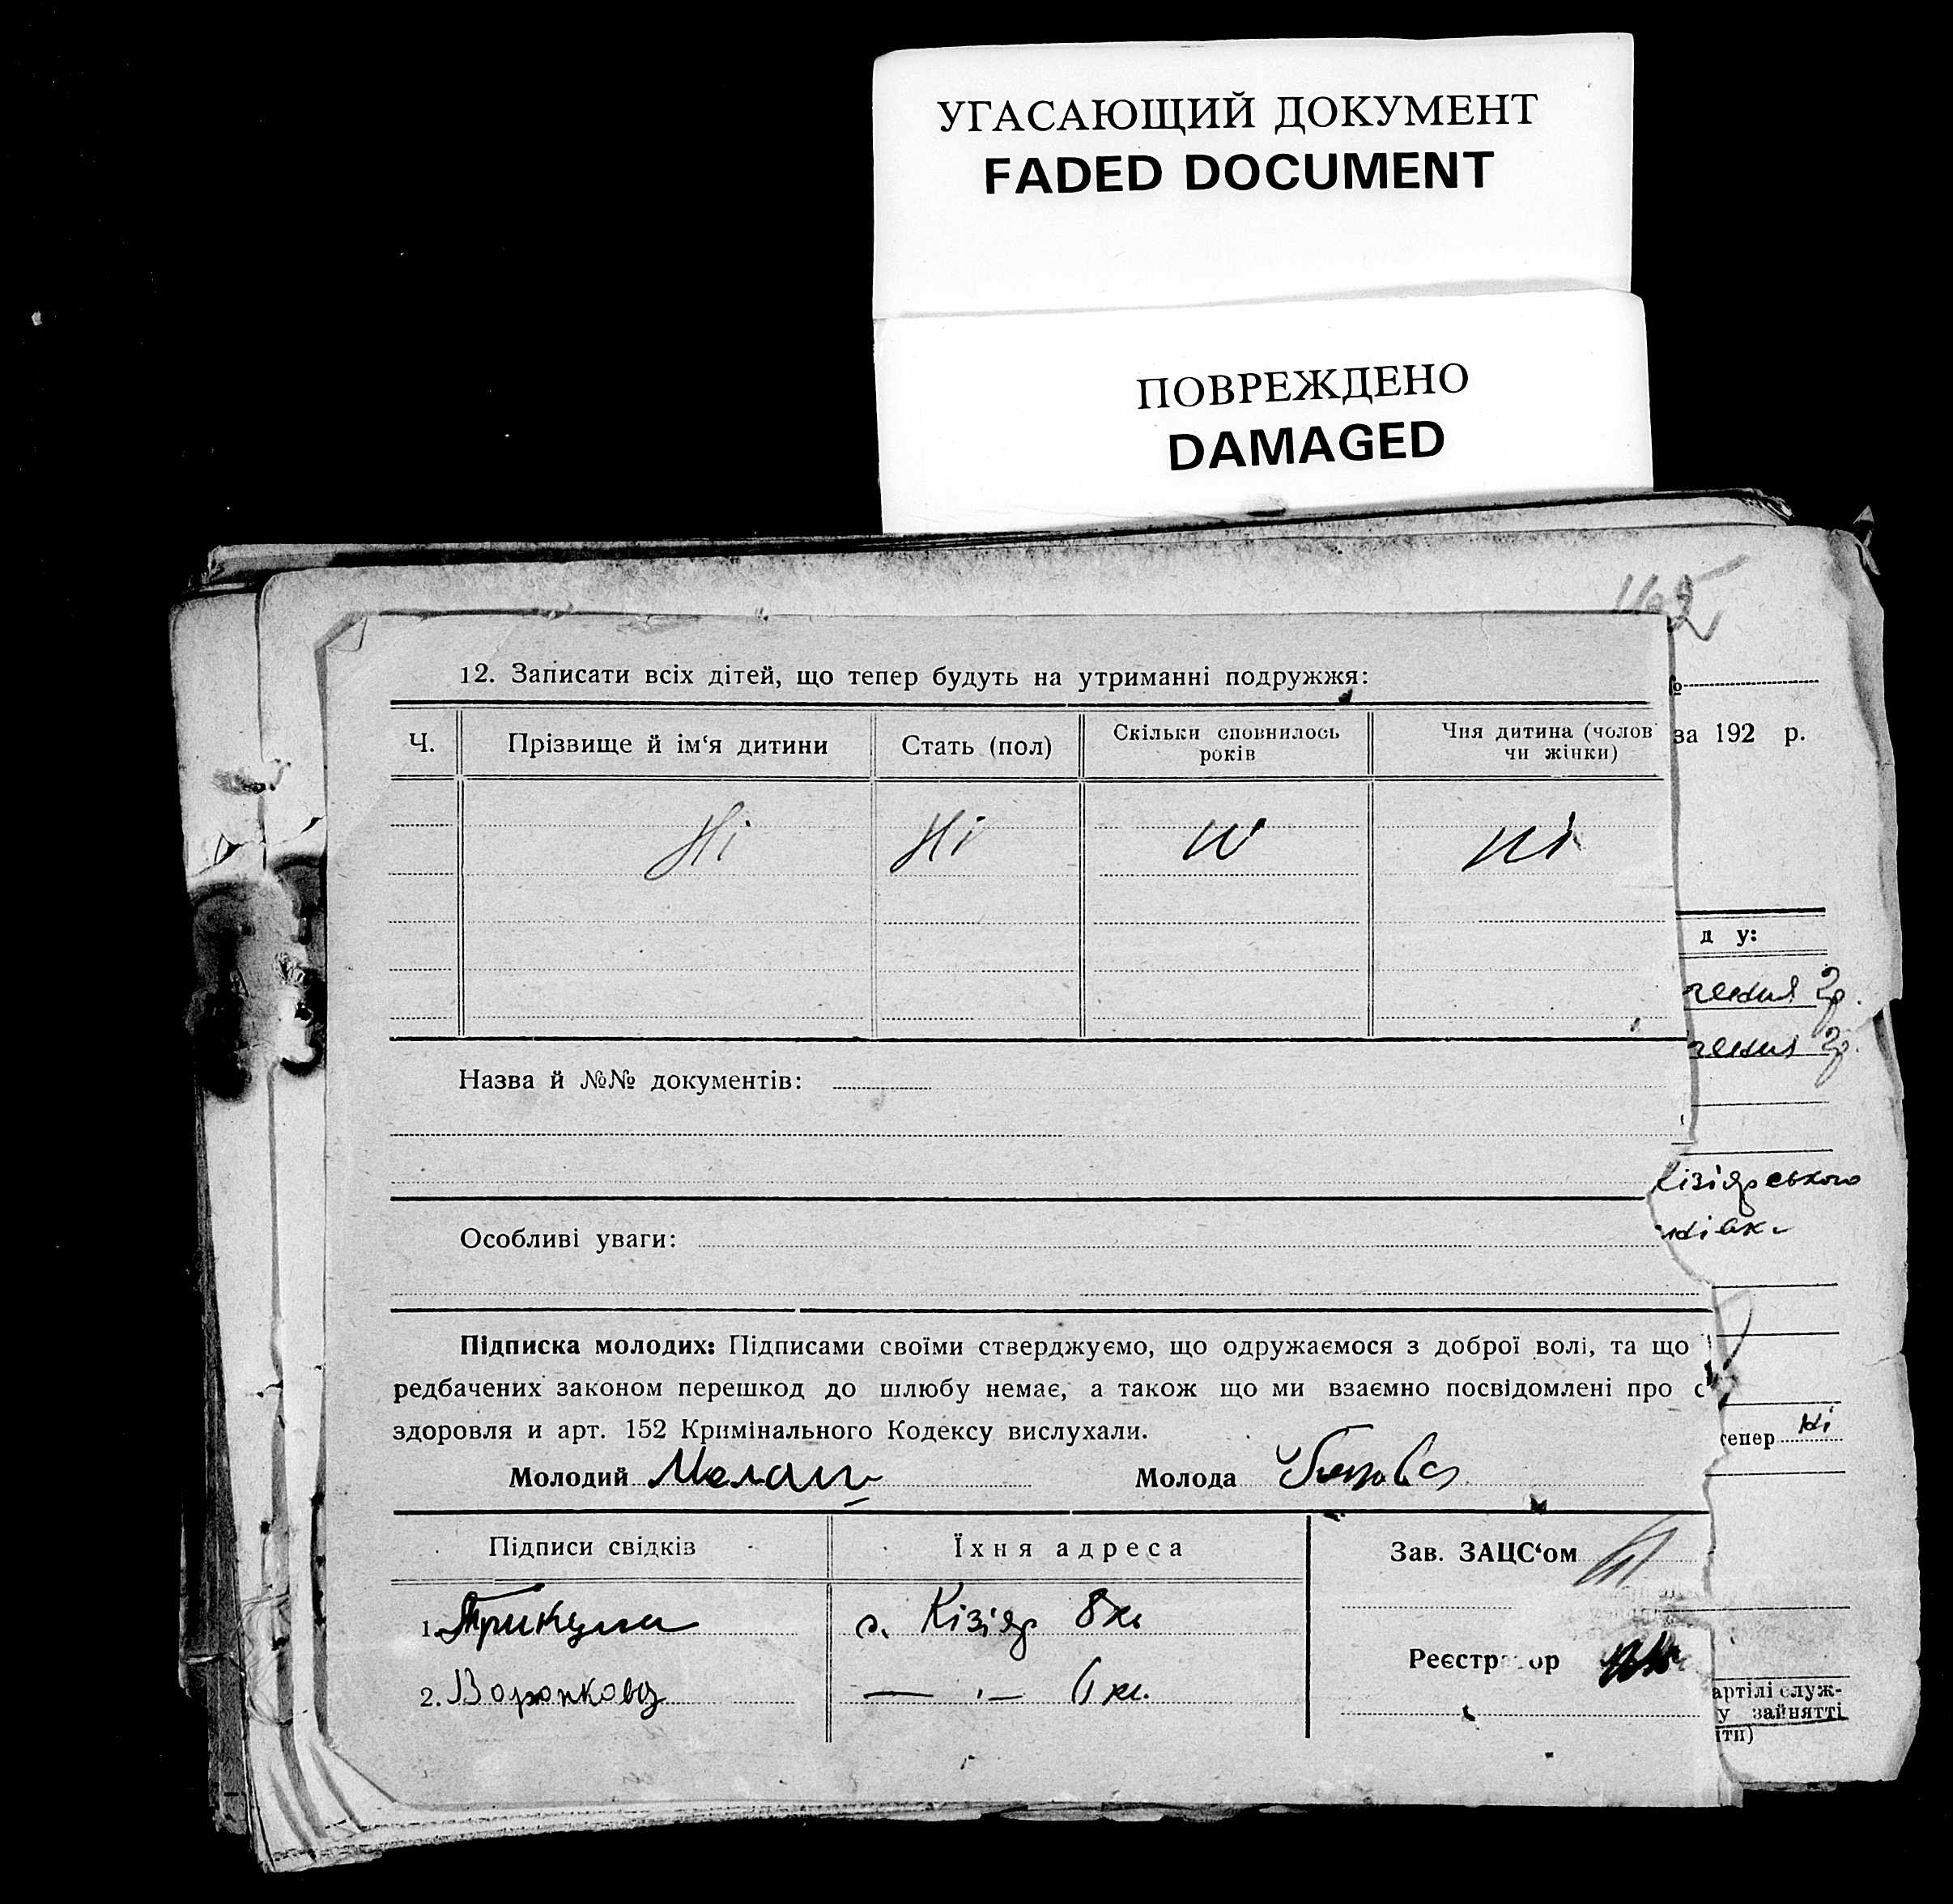 УГАСАЮЩИЙ ДОКУМЕНТ
FADED DOCUMENT
ПОВРЕЖДЕНО
DAMAGED
12. Записати всіх дітей, що тепер будуть на утриманні подружжя:
за 192 р.
Ч. Прізвище й ім‘я дитини Стать (пол) Скільки сповнилось років Чия дитина (чолов чи жінки)
Ні Ні ні ні
д у:
Назва й №№ документів:
Особливі уваги:
Підписка молодих: Підписами своїми стверджуємо, що одружаємося з доброї волі, та що
редбачених законом перешкод до шлюбу немає, а також що ми взаємно посвідомлені про с
здоровля и арт. 152 Кримінального Кодексу вислухали.
тепер ні
Молодий Молода
Підписи свідків Їхня адреса Зав. ЗАЦС‘ом
1. с. Кізіяр 8 к.
Реєстр ор
2. Воронкова — „ — 6 к.
артілі служ-
у зайнятті
ити)